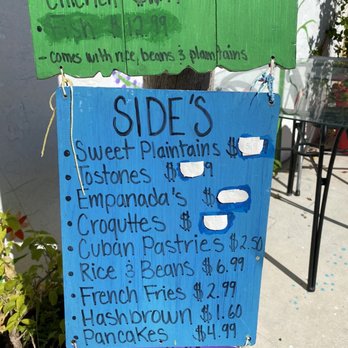 Chicken
Fish $12.99
- comes with rice, beans & plaintains
SIDE'S
• Sweet Plaintains $
• Tostones $ 9
• Empanada's $
• Croquttes $
• Cuban Pastries $2.50
• Rice & Beans $6.99
• French Fries $2.99
• Hashbrown $1.60
Pancakes $4.99